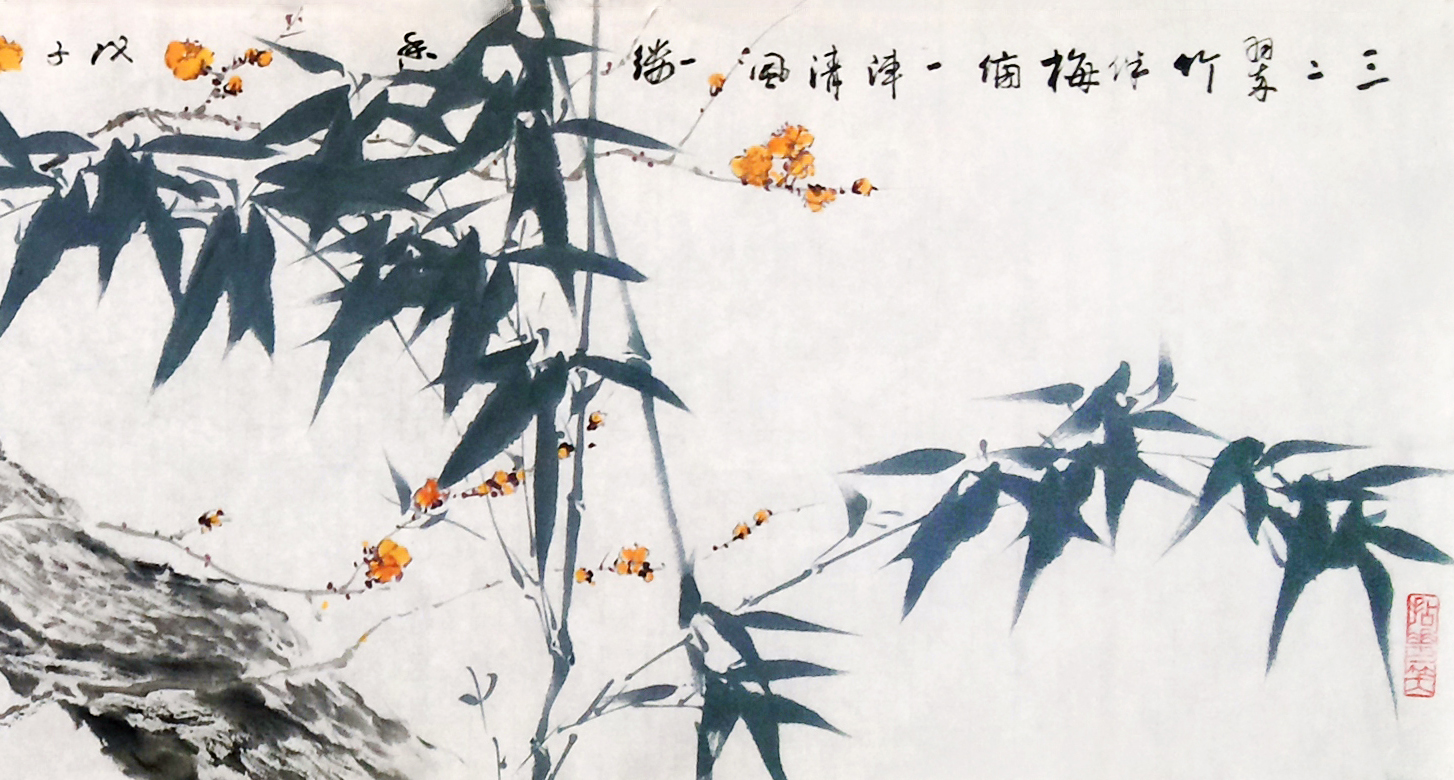 三二翠竹伴梅 一陣清風一縷香 戊子